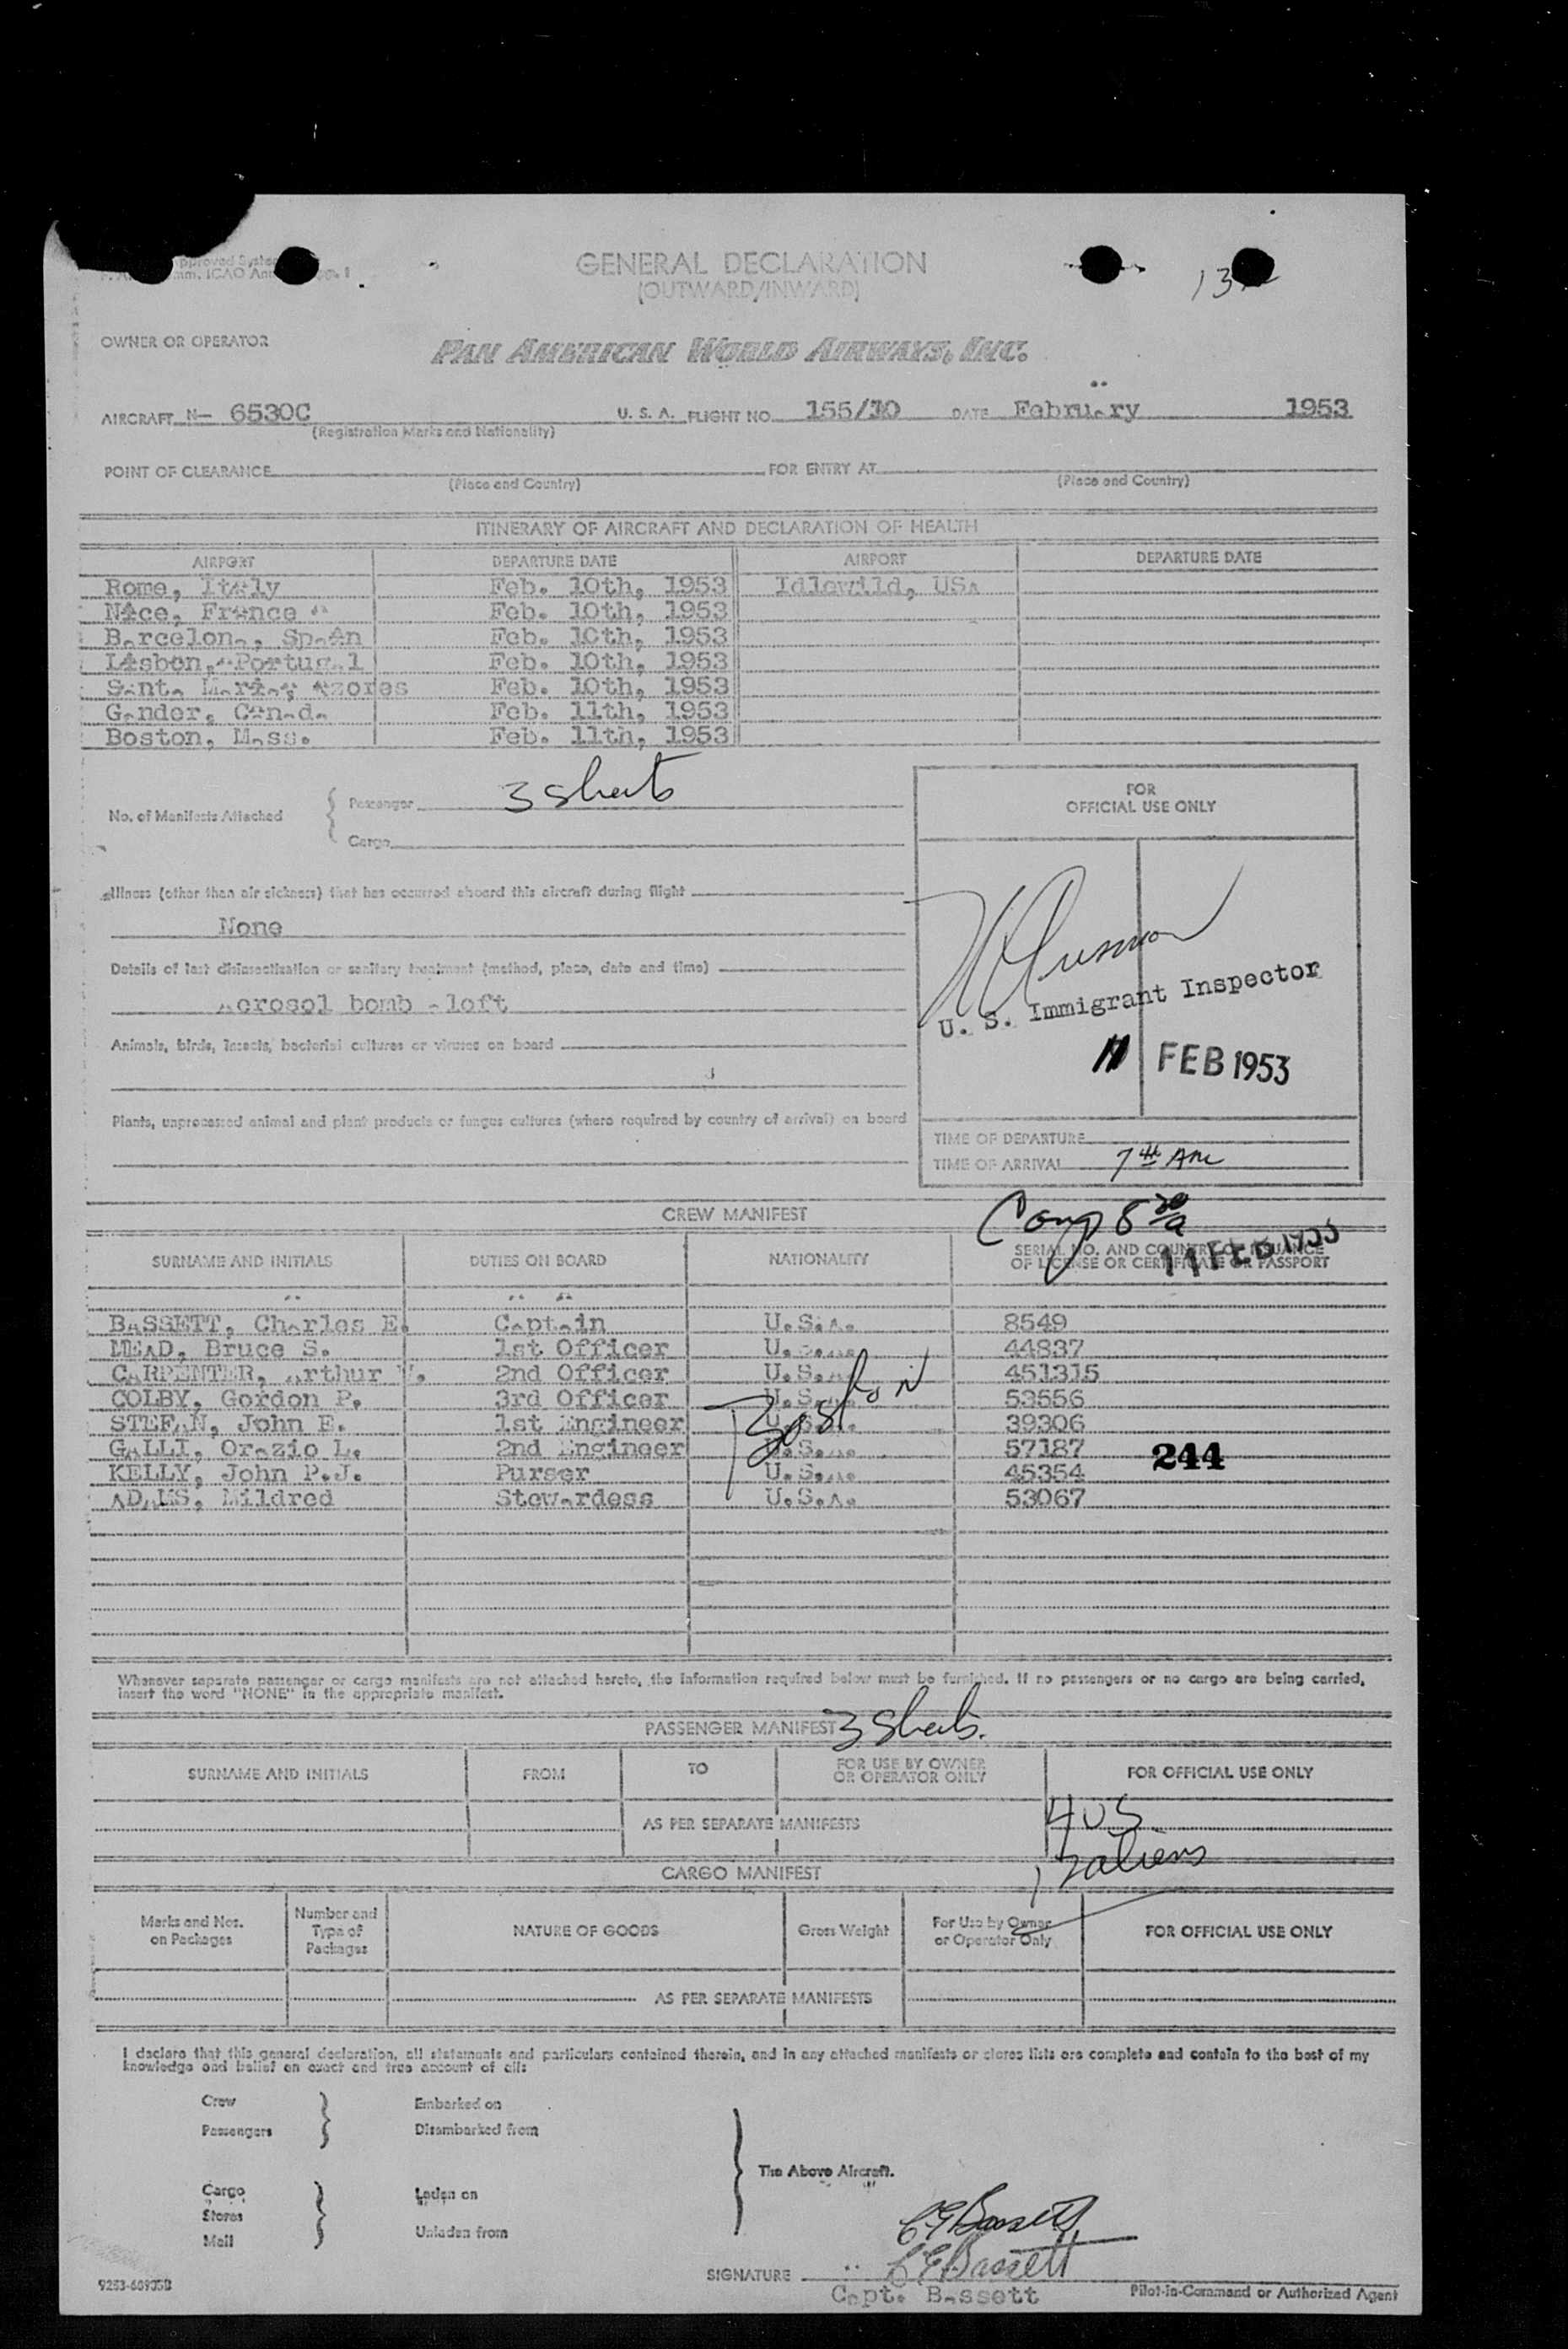 GENERAL DECLARATION
(OUTWARD/INWARD)
OWNER OR OPERATOR
PAN AMERICAN WORLD AIRWAYS, INC.
AIRCRAFT N- 6530C U. S. A. FLIGHT NO. 155/10 DATE February 1953
(Registration Marks and Nationality)
POINT OF CLEARANCE FOR ENTRY AT
(Place and Country) (Place and Country)
ITINERARY OF AIRCRAFT AND DECLARATION OF HEALTH
AIRPORT DEPARTURE DATE AIRPORT DEPARTURE DATE
Rome, Italy Feb. 10th, 1953 Idlewild, USA
Nice, France Feb. 10th, 1953
Barcelona, Spain Feb. 10th, 1953
Lisbon, Portugal Feb. 10th, 1953
Santa Maria, Azores Feb. 10th, 1953
Gander, Canada Feb. 11th, 1953
Boston, Mass. Feb. 11th, 1953
No. of Manifests Attached
Passenger 3 sheets
Cargo
FOR
OFFICIAL USE ONLY
Illness (other than air sickness) that has occurred aboard this aircraft during flight
None
Details of last disinsectisation or sanitary treatment (method, place, date and time)
Aerosol bomb aloft
U. S. Immigrant Inspector
Animals, birds, insects, bacterial cultures or viruses on board
11 FEB 1953
Plants, unprocessed animal and plant products or fungus cultures (where required by country of arrival) on board
TIME OF DEPARTURE
TIME OF ARRIVAL
CREW MANIFEST
11 FEB 1953
SURNAME AND INITIALS DUTIES ON BOARD NATIONALITY SERIAL NO. AND COUNTRY OF ISSUANCE
OF LICENSE OR CERTIFICATE OR PASSPORT
BASSETT, Charles E. Captain U.S.A. 8549
MEAD, Bruce S. 1st Officer U.S.A. 44837
CARPENTER, Arthur 2nd Officer U.S.A. 451315
COLBY, Gordon P. 3rd Officer U.S.A. 53556
STEFAN, John E. 1st Engineer U.S.A. 39306
GALLI, Orazio L. 2nd Engineer U.S.A. 57187
KELLY, John P.J. Purser U.S.A. 45354
ADAMS, Mildred Stewardess U.S.A. 53067
Boston
244
Whenever separate passenger or cargo manifests are not attached hereto, the information required below must be furnished. If no passengers or no cargo are being carried,
insert the word "NONE" in the appropriate manifest.
PASSENGER MANIFEST 3 sheets.
SURNAME AND INITIALS FROM TO FOR USE BY OWNER
OR OPERATOR ONLY FOR OFFICIAL USE ONLY
AS PER SEPARATE MANIFESTS
4 US
aliens
CARGO MANIFEST
Marks and Nos.
on Packages
Number and
Type of
Packages
NATURE OF GOODS
Gross Weight
For Use by Owner
or Operator Only
FOR OFFICIAL USE ONLY
AS PER SEPARATE MANIFESTS
I declare that this general declaration, all statements and particulars contained therein, and in any attached manifests or stores lists are complete and contain to the best of my
knowledge and belief an exact and true account of all:
Crew Embarked on
Passengers Disembarked from
The Above Aircraft.
Cargo Laden on
Stores
Mail Unladen from
C E Bassett
SIGNATURE C E Bassett
Capt. Bassett Pilot-in-Command or Authorized Agent